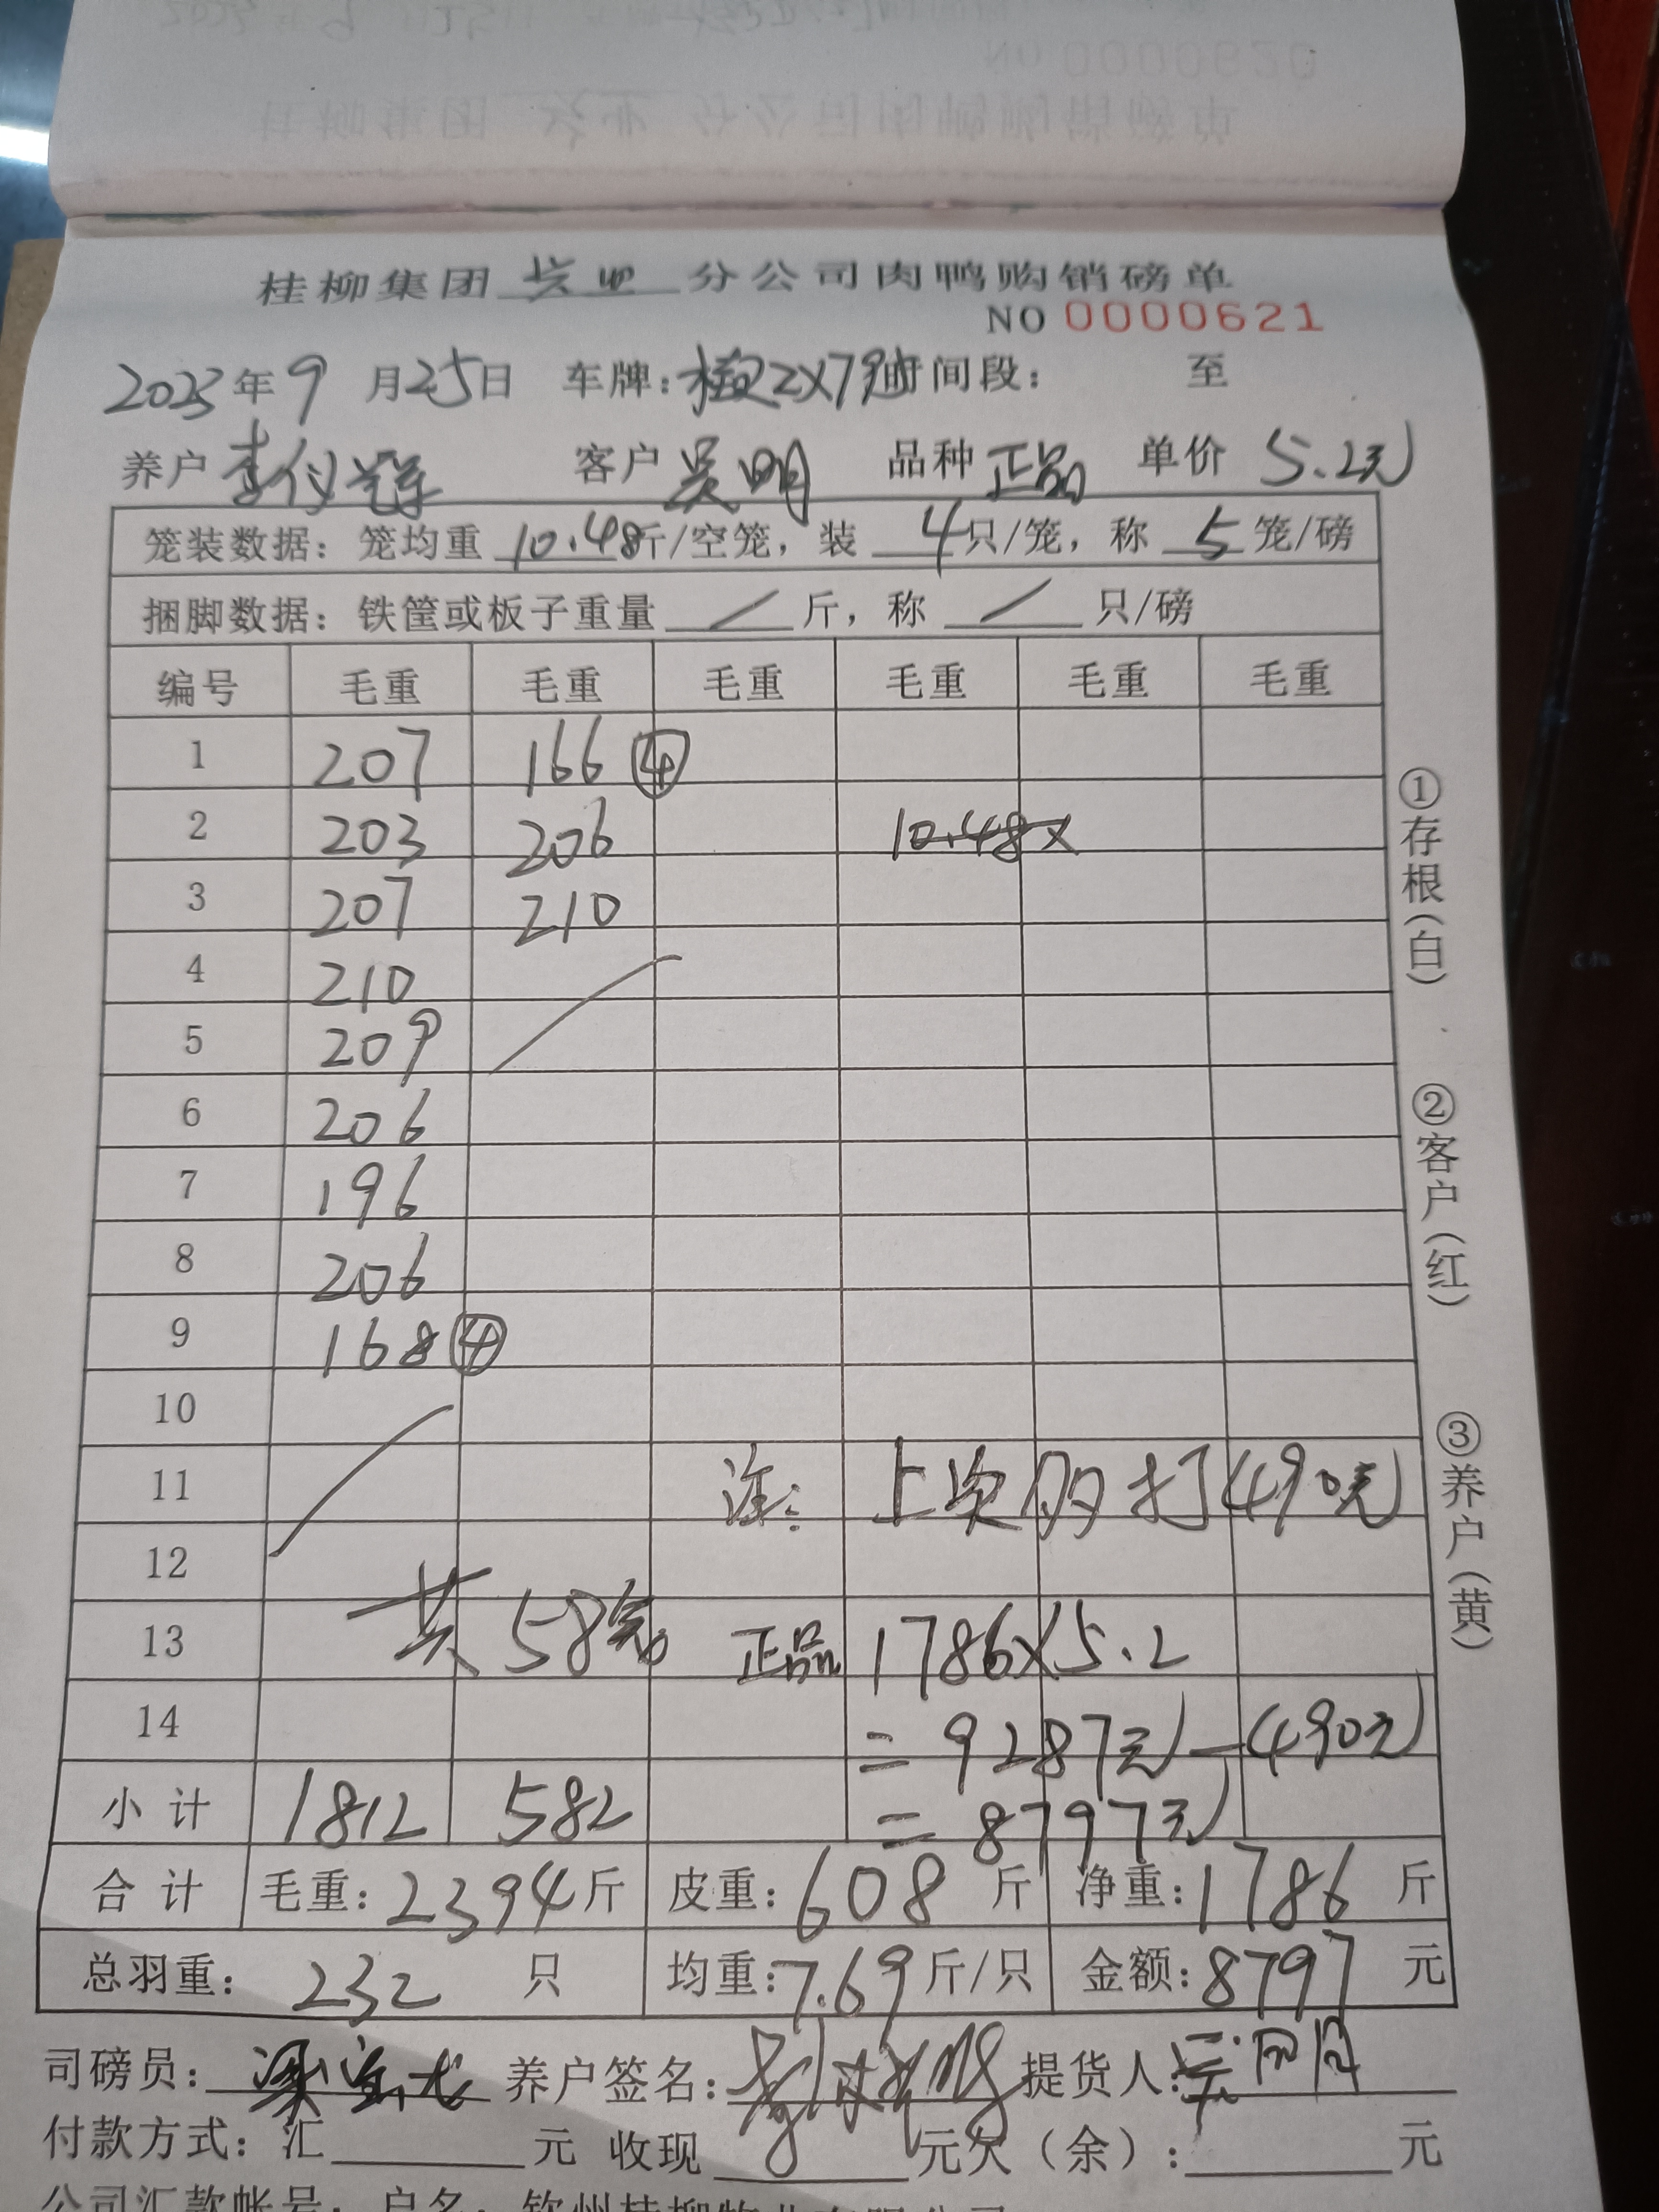 桂柳集团 分公司肉鸭购销磅单
NO 0000621
2023年9月25日 车牌: 时间段: 至
养户 李仪 客户 吴明 品种 正品 单价 5.2元
笼装数据: 笼均重 10.48斤/空笼, 装 4只/笼, 称 5笼/磅
捆脚数据: 铁筐或板子重量 / 斤, 称 / 只/磅
编号 毛重 毛重 毛重 毛重 毛重 毛重
1 207 166 ④
2 203 206 10.48×
3 207 210
4 210
5 209
6 206
7 196
8 206
9 168 ④
10
11 注: 上次多打490元
12
13 共58笼 正品 1786×5.2
14 = 9287元-490元
小计 1812 582 = 8797元
合计 毛重: 2394斤 皮重: 608 斤 净重: 1786 斤
总羽重: 232 只 均重: 7.69斤/只 金额: 8797 元
司磅员: 养户签名: 提货人: 吴明
付款方式: 汇 元 收现 元欠(余): 元
公司汇款帐号: 户名: 钦州桂柳牧业有限公司
①存根(白) ②客户(红) ③养户(黄)